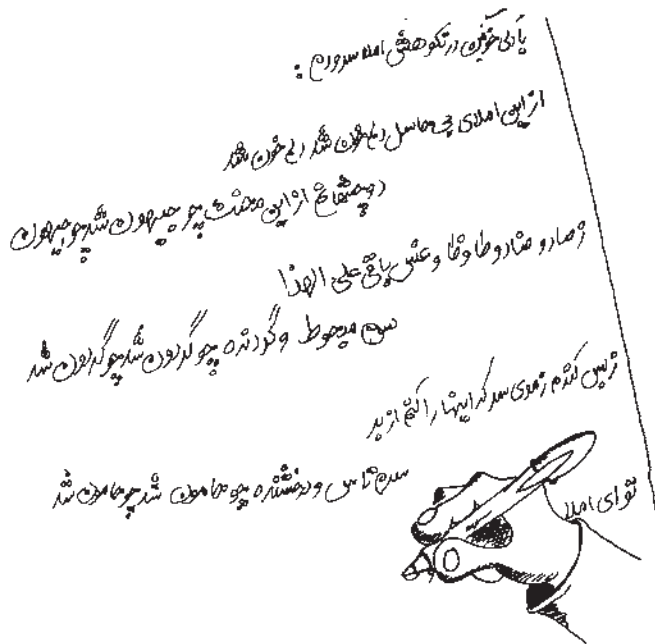 با دلی خونین در نکوهش املا سرودم :
از این املای بی حاصل دلم خون شد دلم خون شد
دو چشمانم از این محنت چو جیهون شد چو جیهون
ز صاد و ضاد و طا و ظا و عش باقی علی الهذا
سرم میحوط و گردنده چو گردون شد چو گردون شد
ز بس کندم ز موی سر که اینها را کنم از بر
سرم تاس و درخشنده چو هامون شد چو هامون شد
تو ای املا